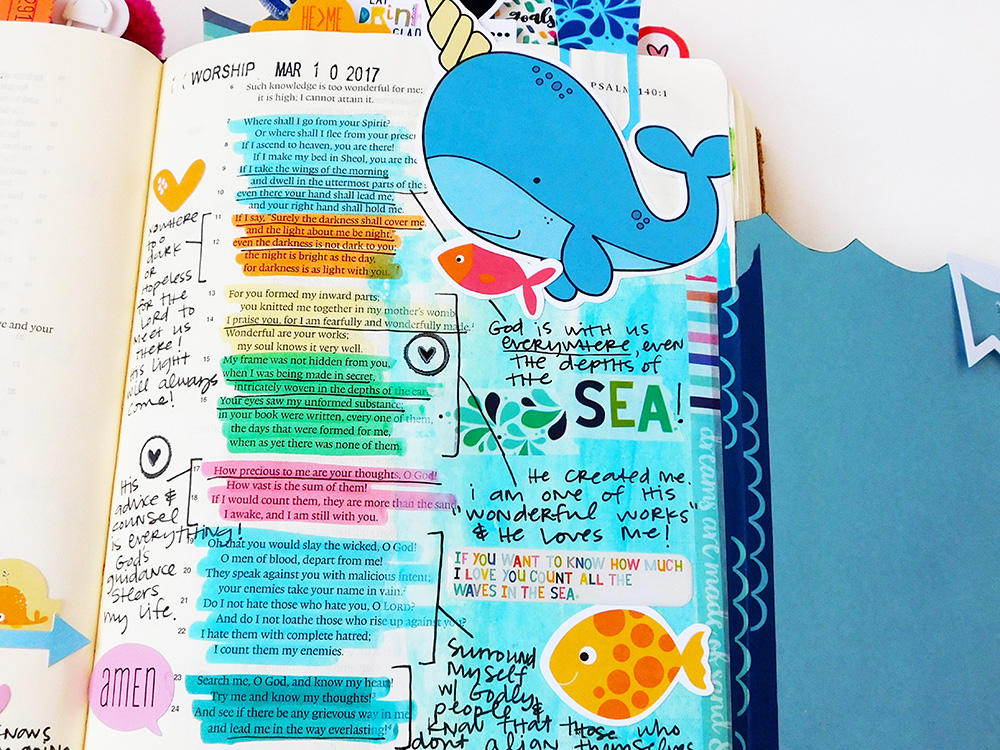 HE>ME
EAT
DRINK
GLAD
goals
WORSHIP MAR 10 2017
PSALM 140:1
6 Such knowledge is too wonderful for me;
it is high; I cannot attain it.
7 Where shall I go from your Spirit?
Or where shall I flee from your
8 If I ascend to heaven, you are there!
If I make my bed in Sheol, you are
9 If I take the wings of the morning
and dwell in the uttermost parts of the
10 even there your hand shall lead me,
and your right hand shall hold me.
11 If I say, "Surely the darkness shall cover me,
and the light about me be night,"
12 even the darkness is not dark to you;
the night is bright as the day,
for darkness is as light with you.
13 For you formed my inward parts;
you knitted me together in my mother's womb.
14 I praise you, for I am fearfully and wonderfully made.
Wonderful are your works;
my soul knows it very well.
15 My frame was not hidden from you,
when I was being made in secret,
intricately woven in the depths of the
16 Your eyes saw my unformed substance;
in your book were written, every one of them,
the days that were formed for me,
when as yet there was none of them.
17 How precious to me are your thoughts, O God!
How vast is the sum of them!
18 If I would count them, they are more than the sand.
I awake, and I am still with you.
19 Oh that you would slay the wicked, O God!
O men of blood, depart from me!
20 They speak against you with malicious intent;
your enemies take your name in vain.
21 Do I not hate those who hate you, O LORD?
And do I not loathe those who rise up against you?
22 I hate them with complete hatred;
I count them my enemies.
23 Search me, O God, and know my heart!
Try me and know my thoughts!
24 And see if there be any grievous way in me,
and lead me in the way everlasting!
NOWHERE
too
dark
or
Hopeless
for the
Lord to
meet us
there!
His light
will always
come!
His
advice &
counsel
is everything!
God's
guidance
steers
my life.
amen
God is with us
everywhere, even
the depths of
the
SEA!
He created me.
i am one of His
"wonderful works"
& He loves me!
IF YOU WANT TO KNOW HOW MUCH
I LOVE YOU COUNT ALL THE
WAVES IN THE SEA.
Surround
myself
w/ Godly
people &
know that those who
don't align themselves
e and your
knows